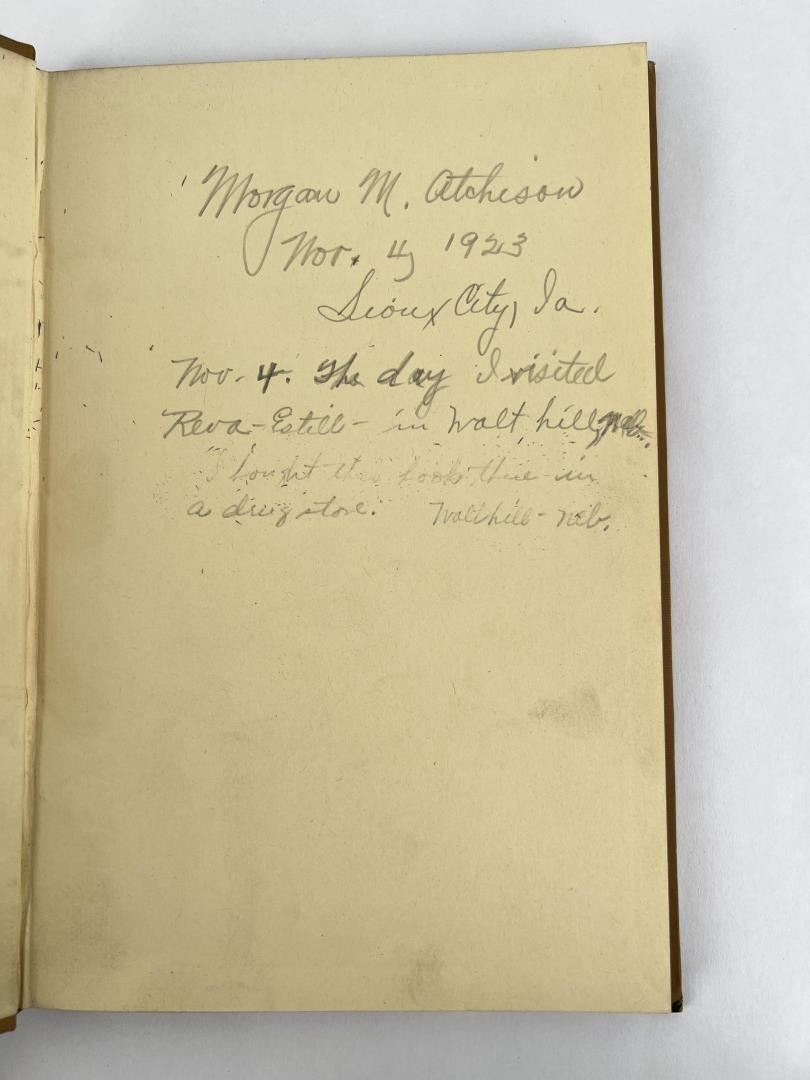 Morgan M. Atchison
Nov. 4, 1923
Sioux City, Ia.
Nov. 4. The day I visited
Reva-Estill- in Walt hill, Neb.
I bought this book there in
a drug store. Walthill - Neb.